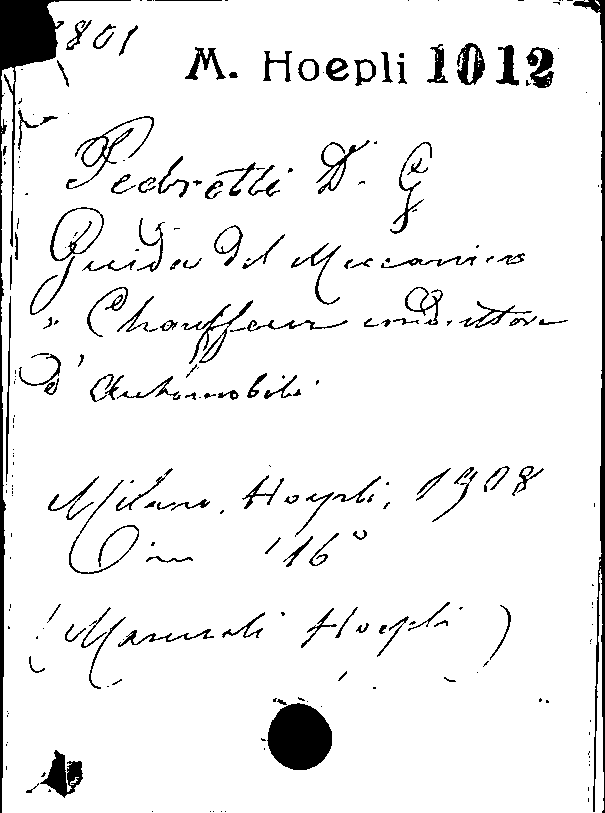 801
M. Hoepli 1012
Pedretti D. G
Guida del Meccanico
" Chauffeur conduttore
d' Automobili
Milano, Hoepli, 1908
in 16°
(Manuali Hoepli)